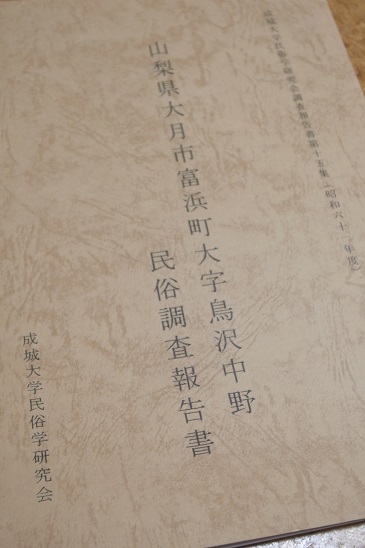 成城大学民俗学研究会調査報告書第十五集(昭和六十一年度)
山梨県大月市富浜町大字鳥沢中野
民俗調査報告書
成城大学民俗学研究会